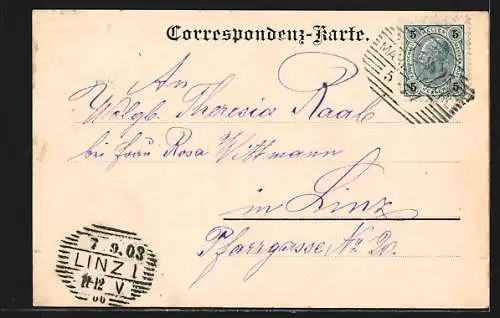 Correspondenz-Karte.
5 5
MA
5
5 5
An
Wolgb. Theresia Raab
bei Frau Rosa Wittmann
in Linz
Pfarrgasse No 20.
7.9.03
LINZ 1
11-12 V